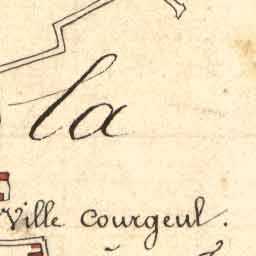 la
Ville Courgeul.